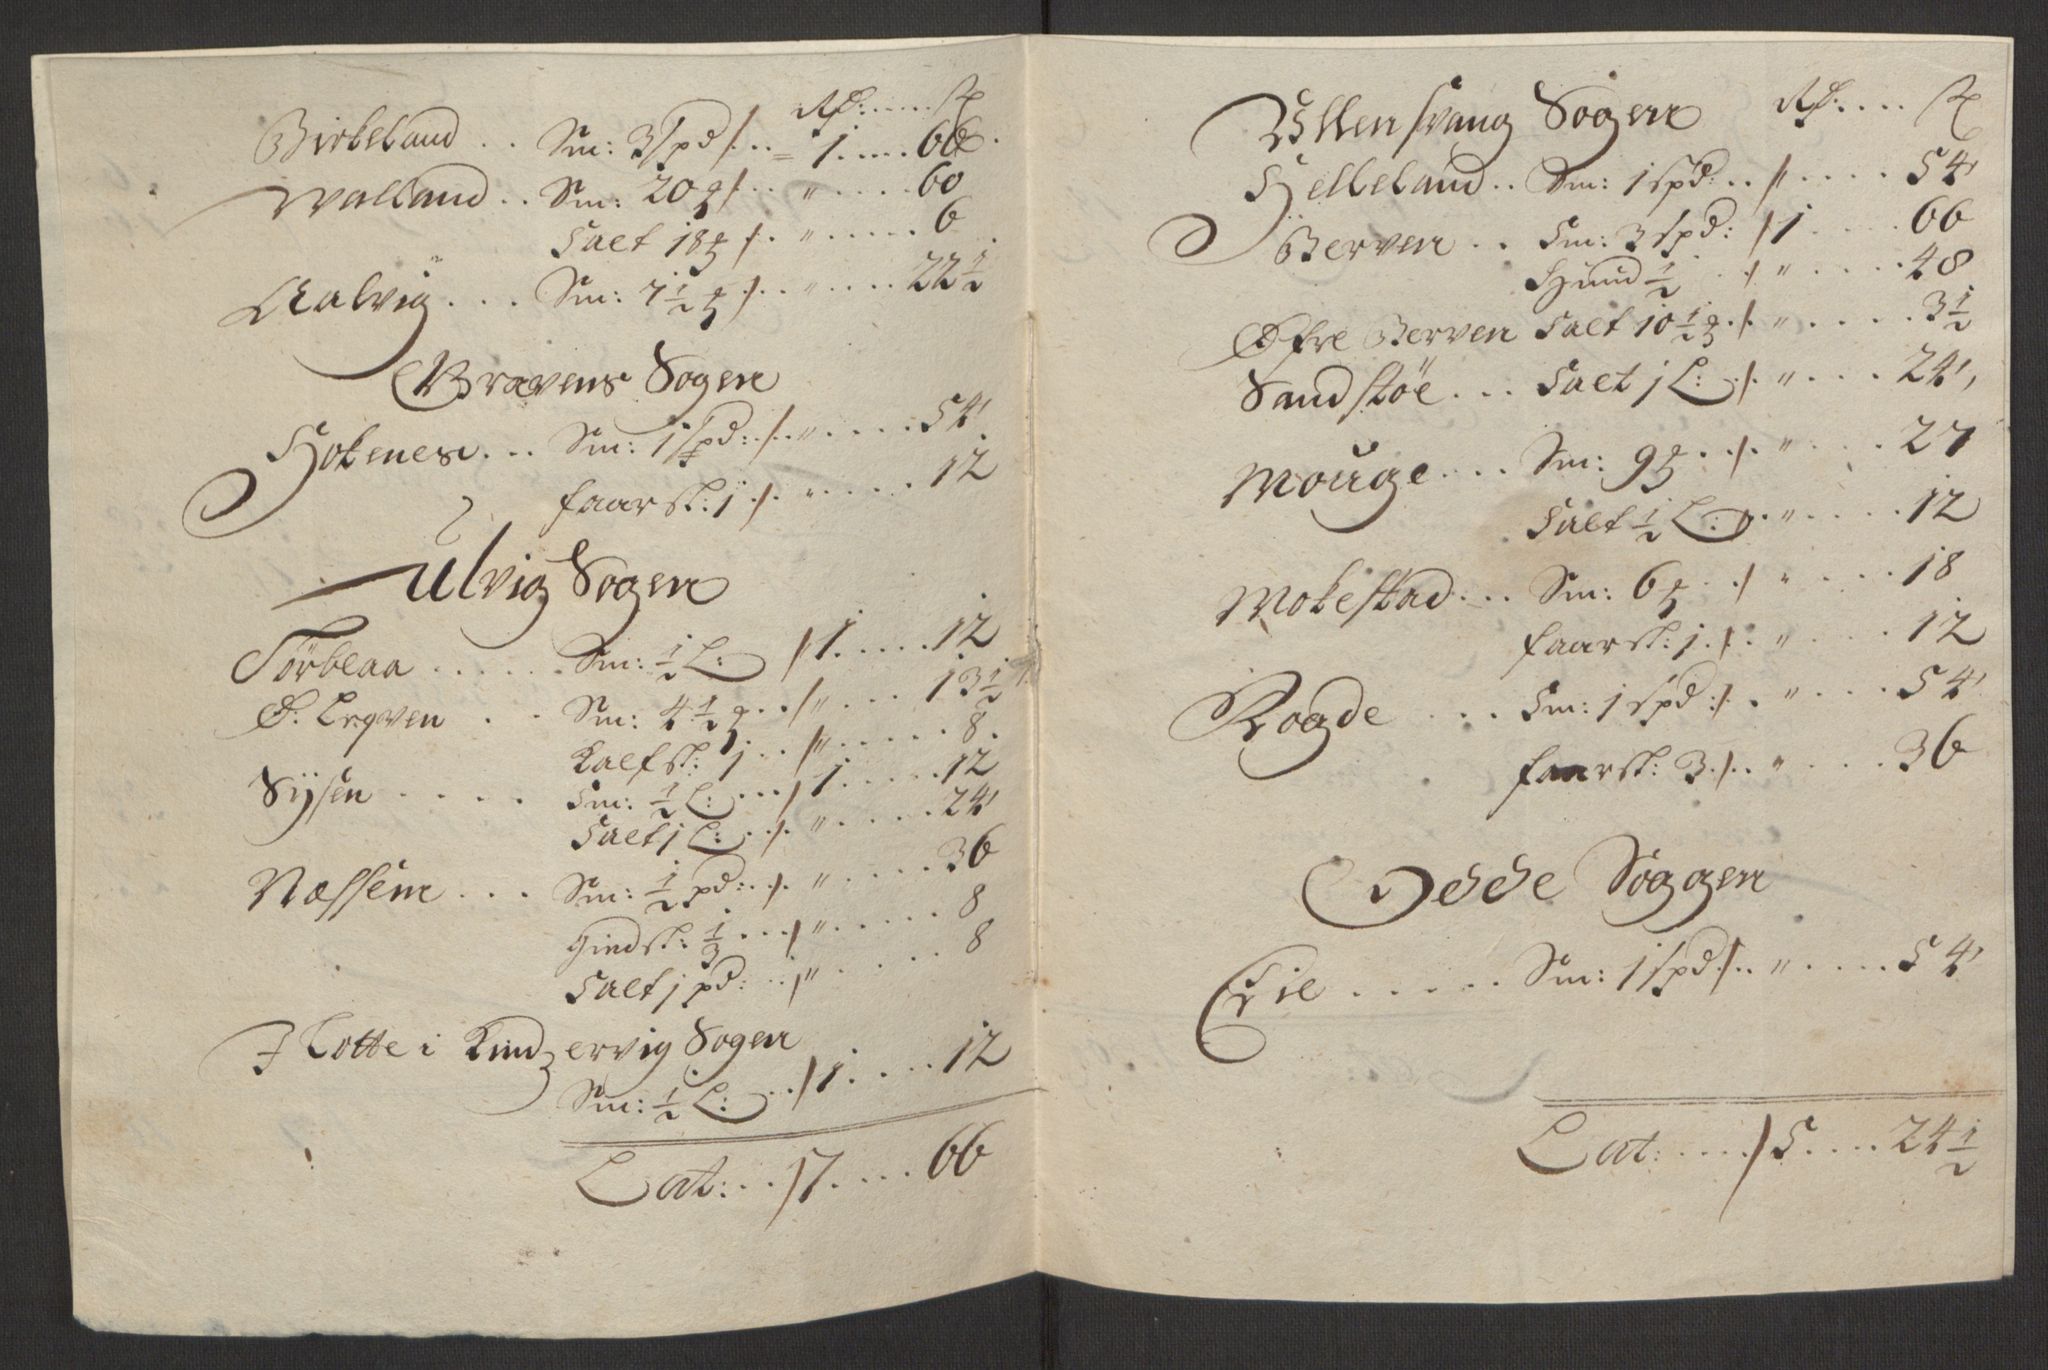 Rd: .... s
Birkeland .. Sm: 3 spd /. .. 1 .... 66
Walland .. Sm: 20 ℔ /. .. " ..... 60
Salt 18 ℔ /. " ..... 6
Aalvig ... Sm: 7 1/2 ℔ /. .. " ..... 22 1/2
Gravens Sogen
Hokenes ... Sm: 1 spd: /. " ..... 54
faar sk: 1 /. " ..... 12
Ulvig Sogen
Torblaa ..... Sm: 1/2 L: / 1 ..... 12
Ø: Leqven .. Sm: 4 1/2 ℔ .. / " ... 13 1/2
Kalfsk: 1 .. / " ...... 8
Sysen ..... Sm: 1/2 L: ... / 1 ..... 12
Salt 1 L: ... /. " ..... 24
Næssem ... Sm: 1/2 pd: .. /. " ..... 36
Giedsk: 1/3 ... / " ..... 8
Salt 1 pd: .. / " ..... 8
I Lotte i Kindzervig Sogen
Sm: 1/2 L: ... / 1 .... 12
Lat: .. / 7 .... 66
Ullensvang Sogen Rd: .... s
Helleland .. Sm: 1 spd: .. / " ..... 54
Berven .. Sm: 3 spd: / 1 ..... 66
Huud 1/2 . / " ..... 48
Øfre Berven Salt 10 1/2 ℔ . / . " ..... 3 1/2
Sandstøe ... Salt 1 L: . / . " .... 24
Mouge ... Sm: 9 ℔ . . / . " .... 27
Salt 1/2 L: . " ..... 12
Mokestad ... Sm: 6 ℔ . . / " ..... 18
faarsk: 1 . / . " ..... 12
Rogde ... Sm: 1 spd: / . " .... 54
faarsk: 3 . / . . " ..... 36
Odde Soggen
Eie ..... Sm: 1 spd: / . . " ..... 54
Lat: .... / 5 .... 24 1/2